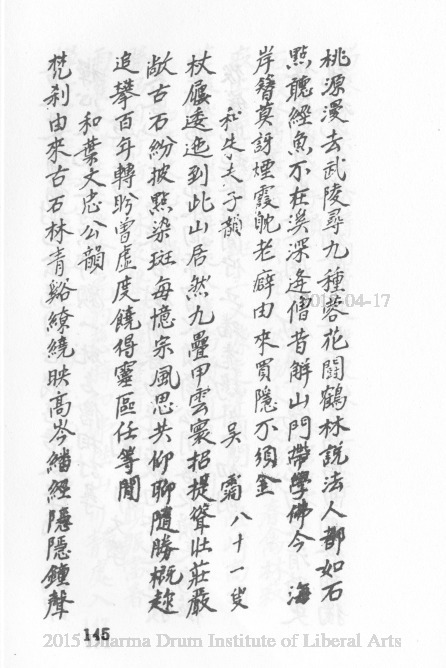 桃源漫去武陵尋九種蓉花鬪鶴林說法人都如石
點聽經魚不在溪深逢僧昔解山門帶學佛今 海
岸簪莫訝煙霞躭老癖由來買隱不須金
和朱夫子韻 吳 霱 八十一叟
杖屨逶迤到此山居然九疊甲雲寰招提聳壯莊嚴
敞古石紛披點染斑每憶宗風思共仰聊隨勝概趂
追攀百年轉盻曾虛度饒得靈區任等閒
和葉文忠公韻
梵刹由來古石林青谿繚繞映高岑繙經隱隱鐘聲
145
2019-04-17
2015 Dharma Drum Institute of Liberal Arts